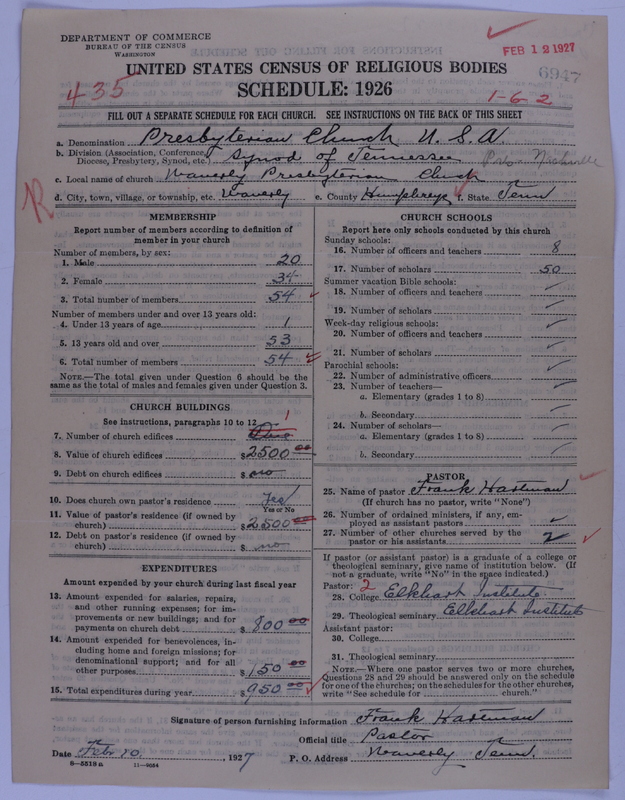 DEPARTMENT OF COMMERCE
BUREAU OF THE CENSUS
WASHINGTON
FEB 12 1927
6947
UNITED STATES CENSUS OF RELIGIOUS BODIES
435
SCHEDULE: 1926
1-6-2
FILL OUT A SEPARATE SCHEDULE FOR EACH CHURCH. SEE INSTRUCTIONS ON THE BACK OF THIS SHEET
a. Denomination Presbyterian Church U.S.A
b. Division (Association, Conference, Diocese, Presbytery, Synod, etc.) Synod of Tennessee Nashville
c. Local name of church Waverly Presbyterian Church
d. City, town, village, or township, etc. Waverly e. County Humphreys f. State Tenn
R
MEMBERSHIP
Report number of members according to definition of
member in your church
Number of members, by sex:
1. Male 20
2. Female 34
3. Total number of members 54
Number of members under and over 13 years old:
4. Under 13 years of age 1
5. 13 years old and over 53
6. Total number of members 54
NOTE.—The total given under Question 6 should be the
same as the total of males and females given under Question 3.
CHURCH BUILDINGS
See instructions, paragraphs 10 to 12
7. Number of church edifices 1
8. Value of church edifices $2500 00
9. Debt on church edifices $ no
10. Does church own pastor's residence Yes
Yes or No
11. Value of pastor's residence (if owned by
church) $2500 00
12. Debt on pastor's residence (if owned by
church) $ no
EXPENDITURES
Amount expended by your church during last fiscal year
13. Amount expended for salaries, repairs,
and other running expenses; for im-
provements or new buildings; and for
payments on church debt $ 800 00
14. Amount expended for benevolences, in-
cluding home and foreign missions; for
denominational support; and for all
other purposes $ 150 00
15. Total expenditures during year $ 950 00
CHURCH SCHOOLS
Report here only schools conducted by this church
Sunday schools:
16. Number of officers and teachers 8
17. Number of scholars 50
Summer vacation Bible schools:
18. Number of officers and teachers
19. Number of scholars
Week-day religious schools:
20. Number of officers and teachers
21. Number of scholars
Parochial schools:
22. Number of administrative officers
23. Number of teachers—
a. Elementary (grades 1 to 8)
b. Secondary
24. Number of scholars—
a. Elementary (grades 1 to 8)
b. Secondary
PASTOR
25. Name of pastor Frank Hartman
(If church has no pastor, write "None")
26. Number of ordained ministers, if any, em-
ployed as assistant pastors
27. Number of other churches served by the
pastor or his assistants 2
If pastor (or assistant pastor) is a graduate of a college or
theological seminary, give name of institution below. (If
not a graduate, write "No" in the space indicated.)
Pastor: 2
28. College Elkhart Institute
29. Theological seminary Elkhart Institute
Assistant pastor:
30. College
31. Theological seminary
NOTE.—Where one pastor serves two or more churches,
Questions 28 and 29 should be answered only on the schedule
for one of the churches; on the schedules for the other churches,
write "See schedule for church."
Signature of person furnishing information Frank Hartman
Official title Pastor
Date Feb 10, 1927 P. O. Address Waverly Tenn.
8-5518 a 11-9064